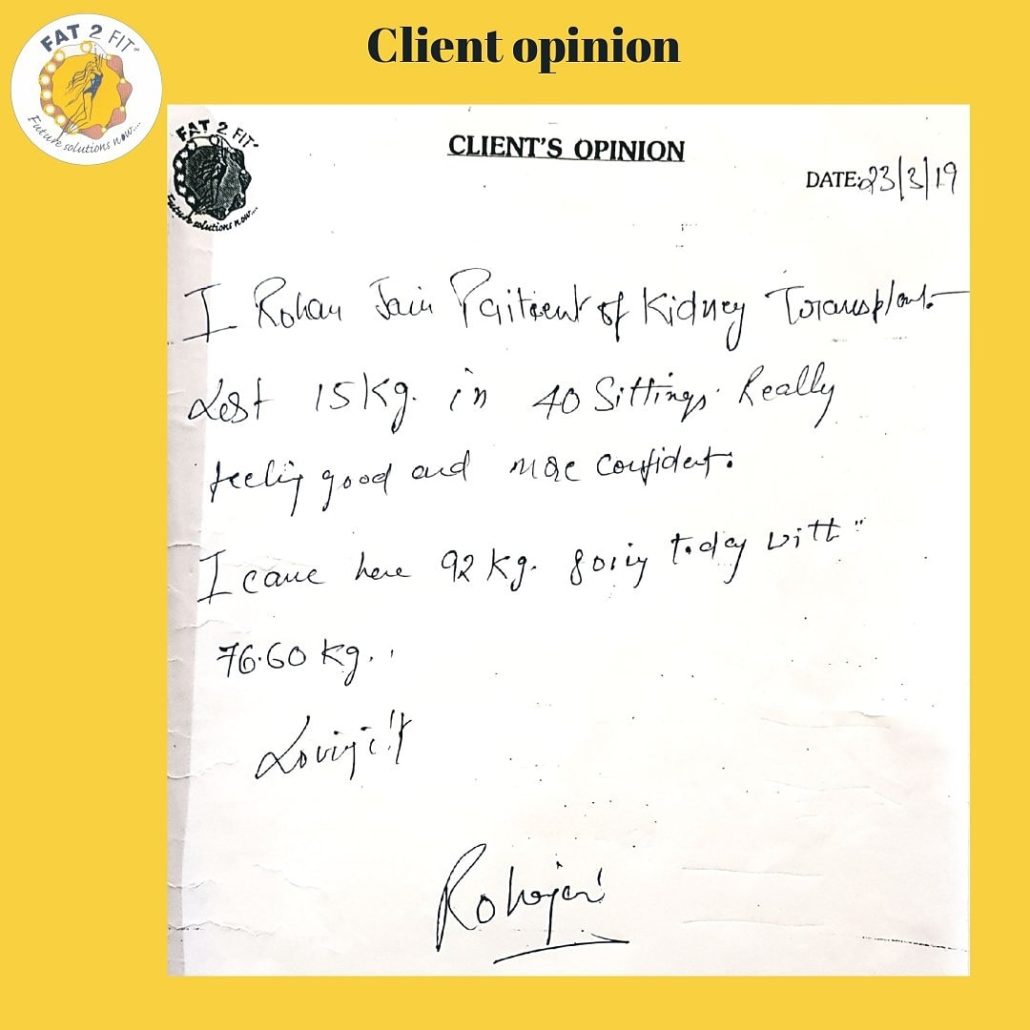 FAT 2 FIT
Future solutions now....
Client opinion
FAT 2 FIT
Future solutions now....
CLIENT'S OPINION
DATE: 23/3/19
I Rohan Jain Paitient of Kidney Transplant
Lost 15 kg. in 40 Sittings. Really
feeling good and more confident.
I came here 92 kg. going today with
76.60 kg..
Loving it